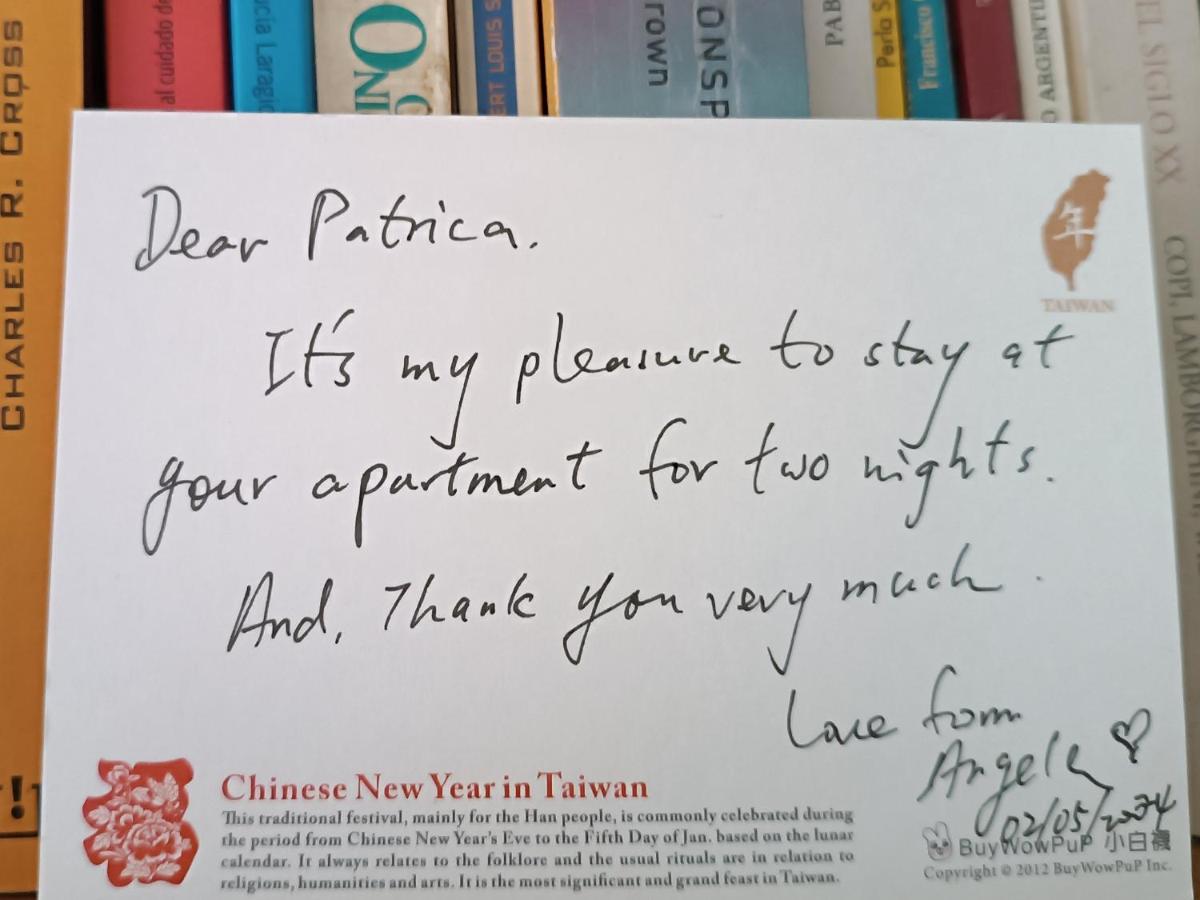 CHARLES R. CROSS
al cuidado de
ucía Laragi
ERT LOUIS S
rown
ONSP
PAB
Perla S
Francisco
O ARGENTI
EL SIGLO XX
COPI, LAMBORGHINI,
Dear Patrica.
年
TAIWAN
It's my pleasure to stay at
your apartment for two nights.
And, Thank you very much.
Love form
Angela ♡
02/05/2024
Chinese New Year in Taiwan
This traditional festival, mainly for the Han people, is commonly celebrated during
the period from Chinese New Year's Eve to the Fifth Day of Jan. based on the lunar
calendar. It always relates to the folklore and the usual rituals are in relation to
religions, humanities and arts. It is the most significant and grand feast in Taiwan.
BuyWowPuP 小白襪
Copyright © 2012 BuyWowPuP Inc.